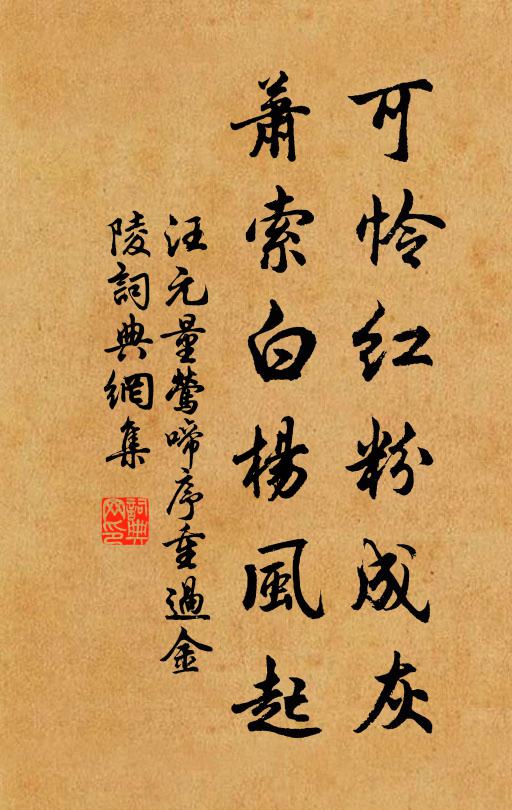 可怜红粉成灰
萧索白楊風起
汪元量鶯啼序重過金
陵詞典網集
詞典
网印